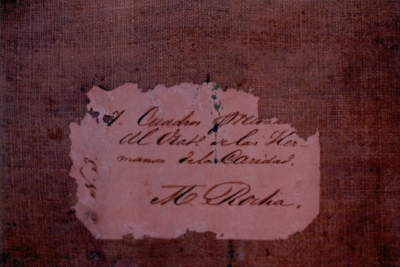 7. Cuadros
del de las Her-
manas de la Caridad.
M. Rocha.